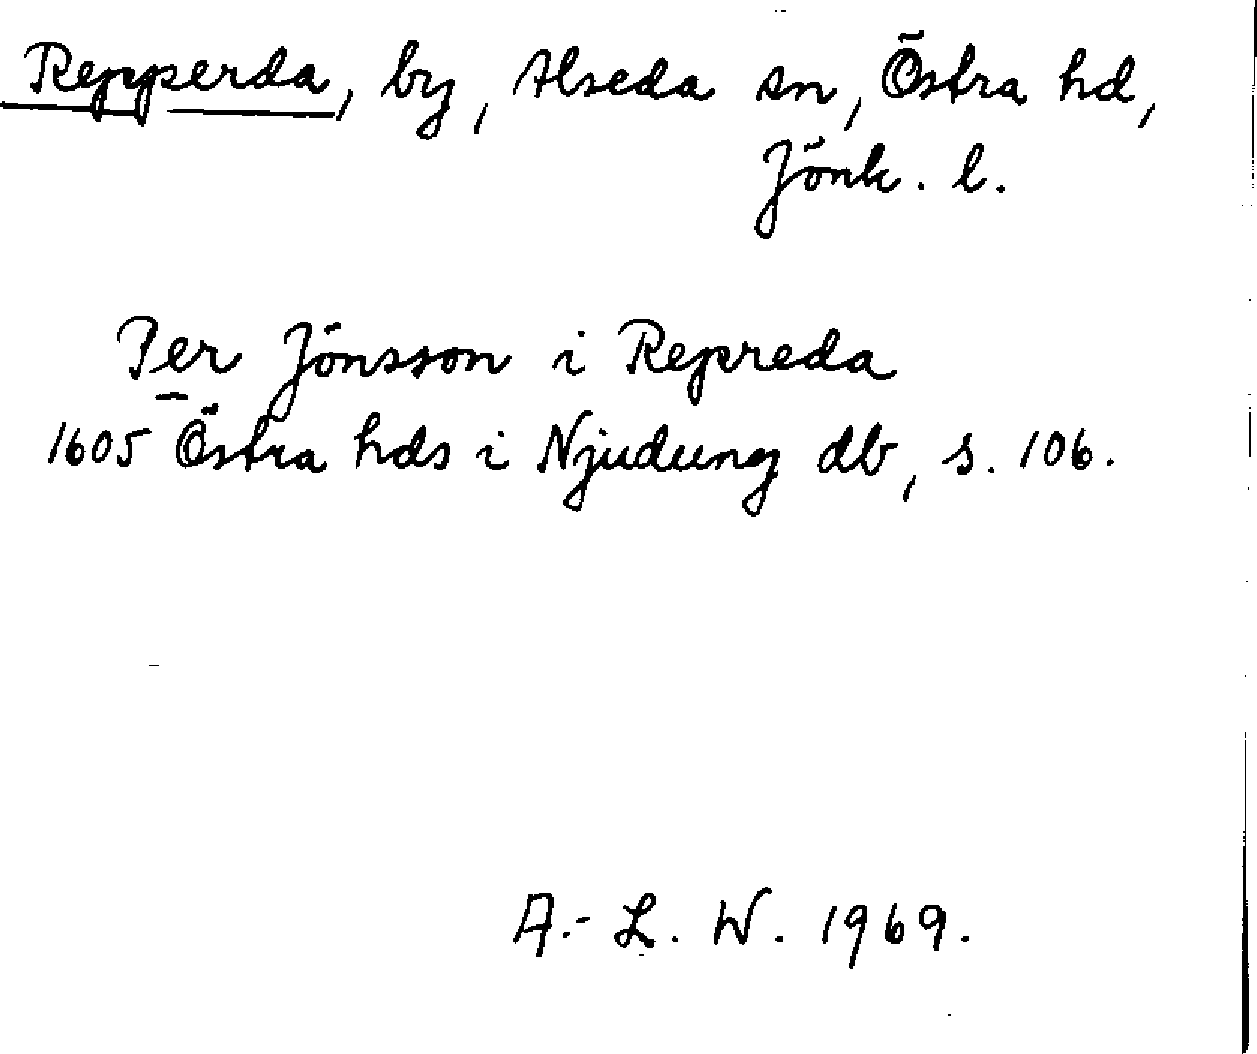 Repperda, by, Alseda sn, Östra hd,
Jönk. l.
Per Jönsson i Repreda
1605 Östra hds i Njudung db, s. 106.
A.-L. W. 1969.